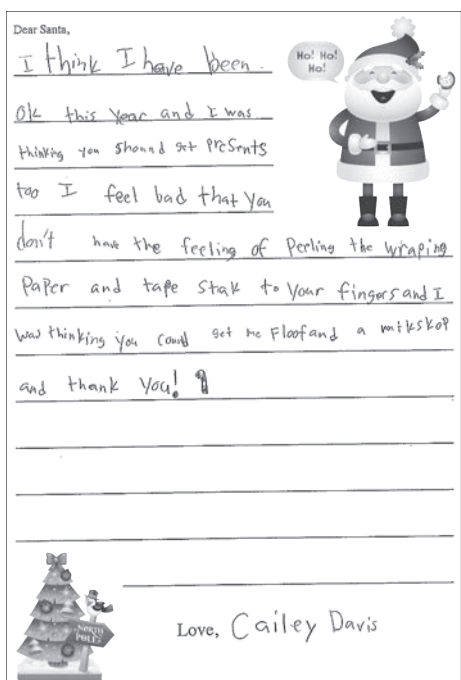 Dear Santa,
I think I have been
Ho! Ho!
Ho!
Ok this year and I was
thinking you shound get Presents
too I feel bad that you
don't have the feeling of Perling the wraping
Paper and tape stak to your fingers and I
was thinking you cound get me Floof and a mitkskop
and thank you!
NORTH
POLE
Love, Cailey Davis